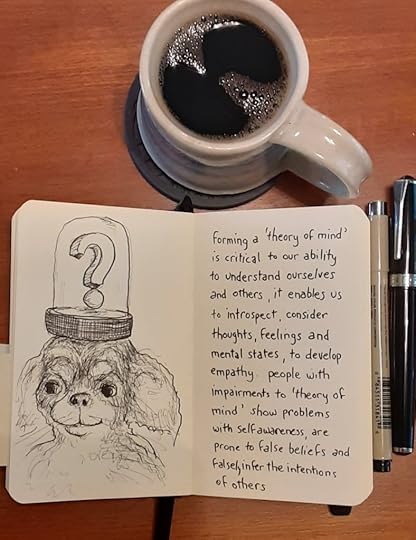 ?
Forming a 'theory of mind'
is critical to our ability
to understand ourselves
and others, it enables us
to introspect, consider
thoughts, feelings and
mental states, to develop
empathy. people with
impairments to 'theory of
mind' show problems
with self awareness, are
prone to false beliefs and
falsely infer the intentions
of others